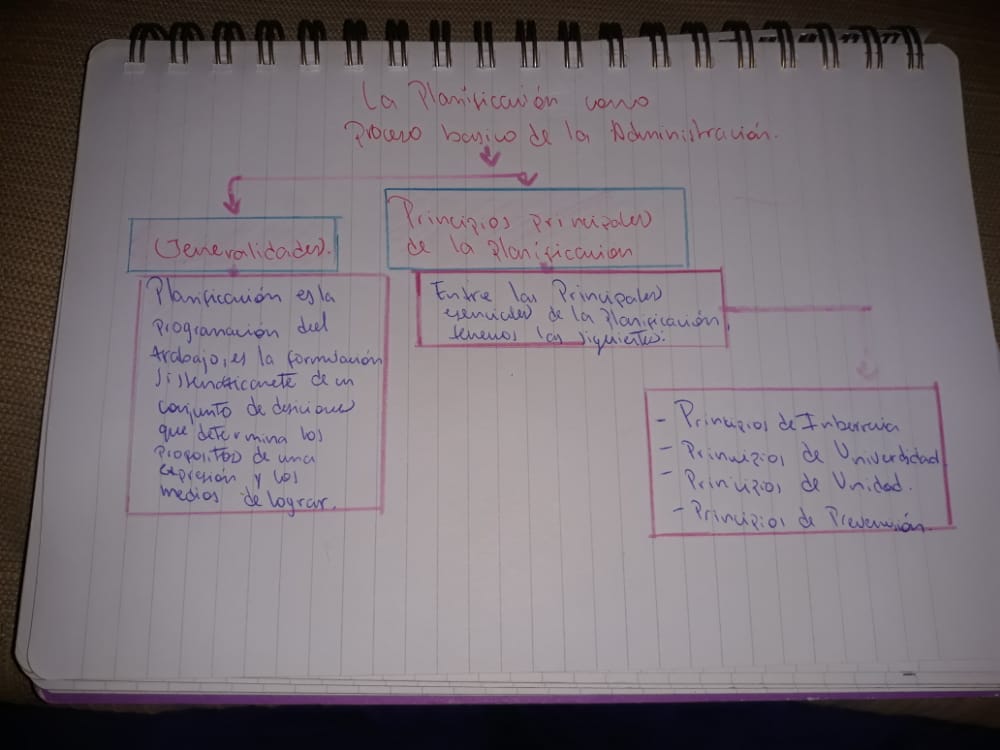 La Planificación como
Proceso basico de la Administración.
Generalidades.
Principios principales
de la Planificacion
Planificación es la
programación del
trabajo, es la formulación
de un
conjunto de desiciones
que determina los
propositos de una
expresión y los
medios de lograr.
Entre las Principales
esenciales de la Planificación
tenemos las siguientes:
- Principios de
- Principios de
- Principios de Unidad.
- Principios de Prevención.